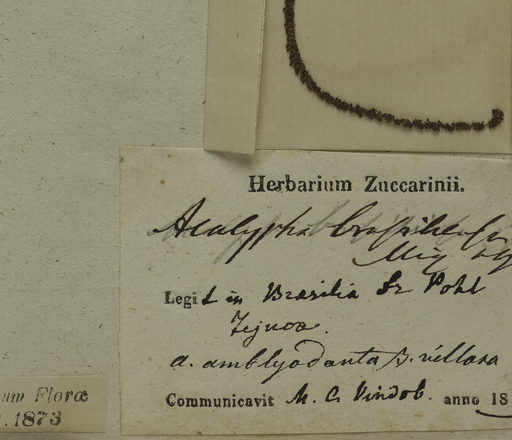 Herbarium Zuccarinii.
Acalypha brasiliens
Legit in Brasilia Dr Pohl
Tejuco.
a. amblyodonta β. villosa
Communicavit M. C. Vindob. anno 18
um Floræ
.1873